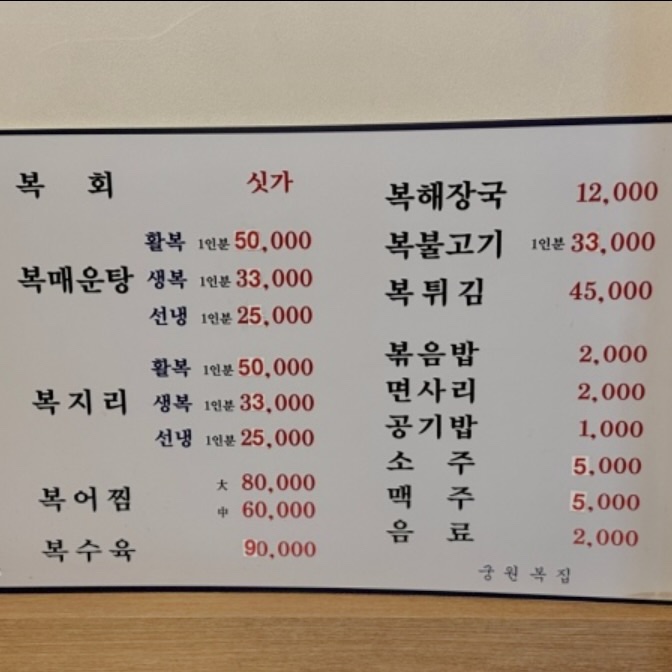 복 회 싯가
활복 1인분 50,000
복매운탕 생복 1인분 33,000
선냉 1인분 25,000
활복 1인분 50,000
복지리 생복 1인분 33,000
선냉 1인분 25,000
복어찜 大 80,000
中 60,000
복수육 90,000
복해장국 12,000
복불고기 1인분 33,000
복튀김 45,000
볶음밥 2,000
면사리 2,000
공기밥 1,000
소 주 5,000
맥 주 5,000
음 료 2,000
궁원복집